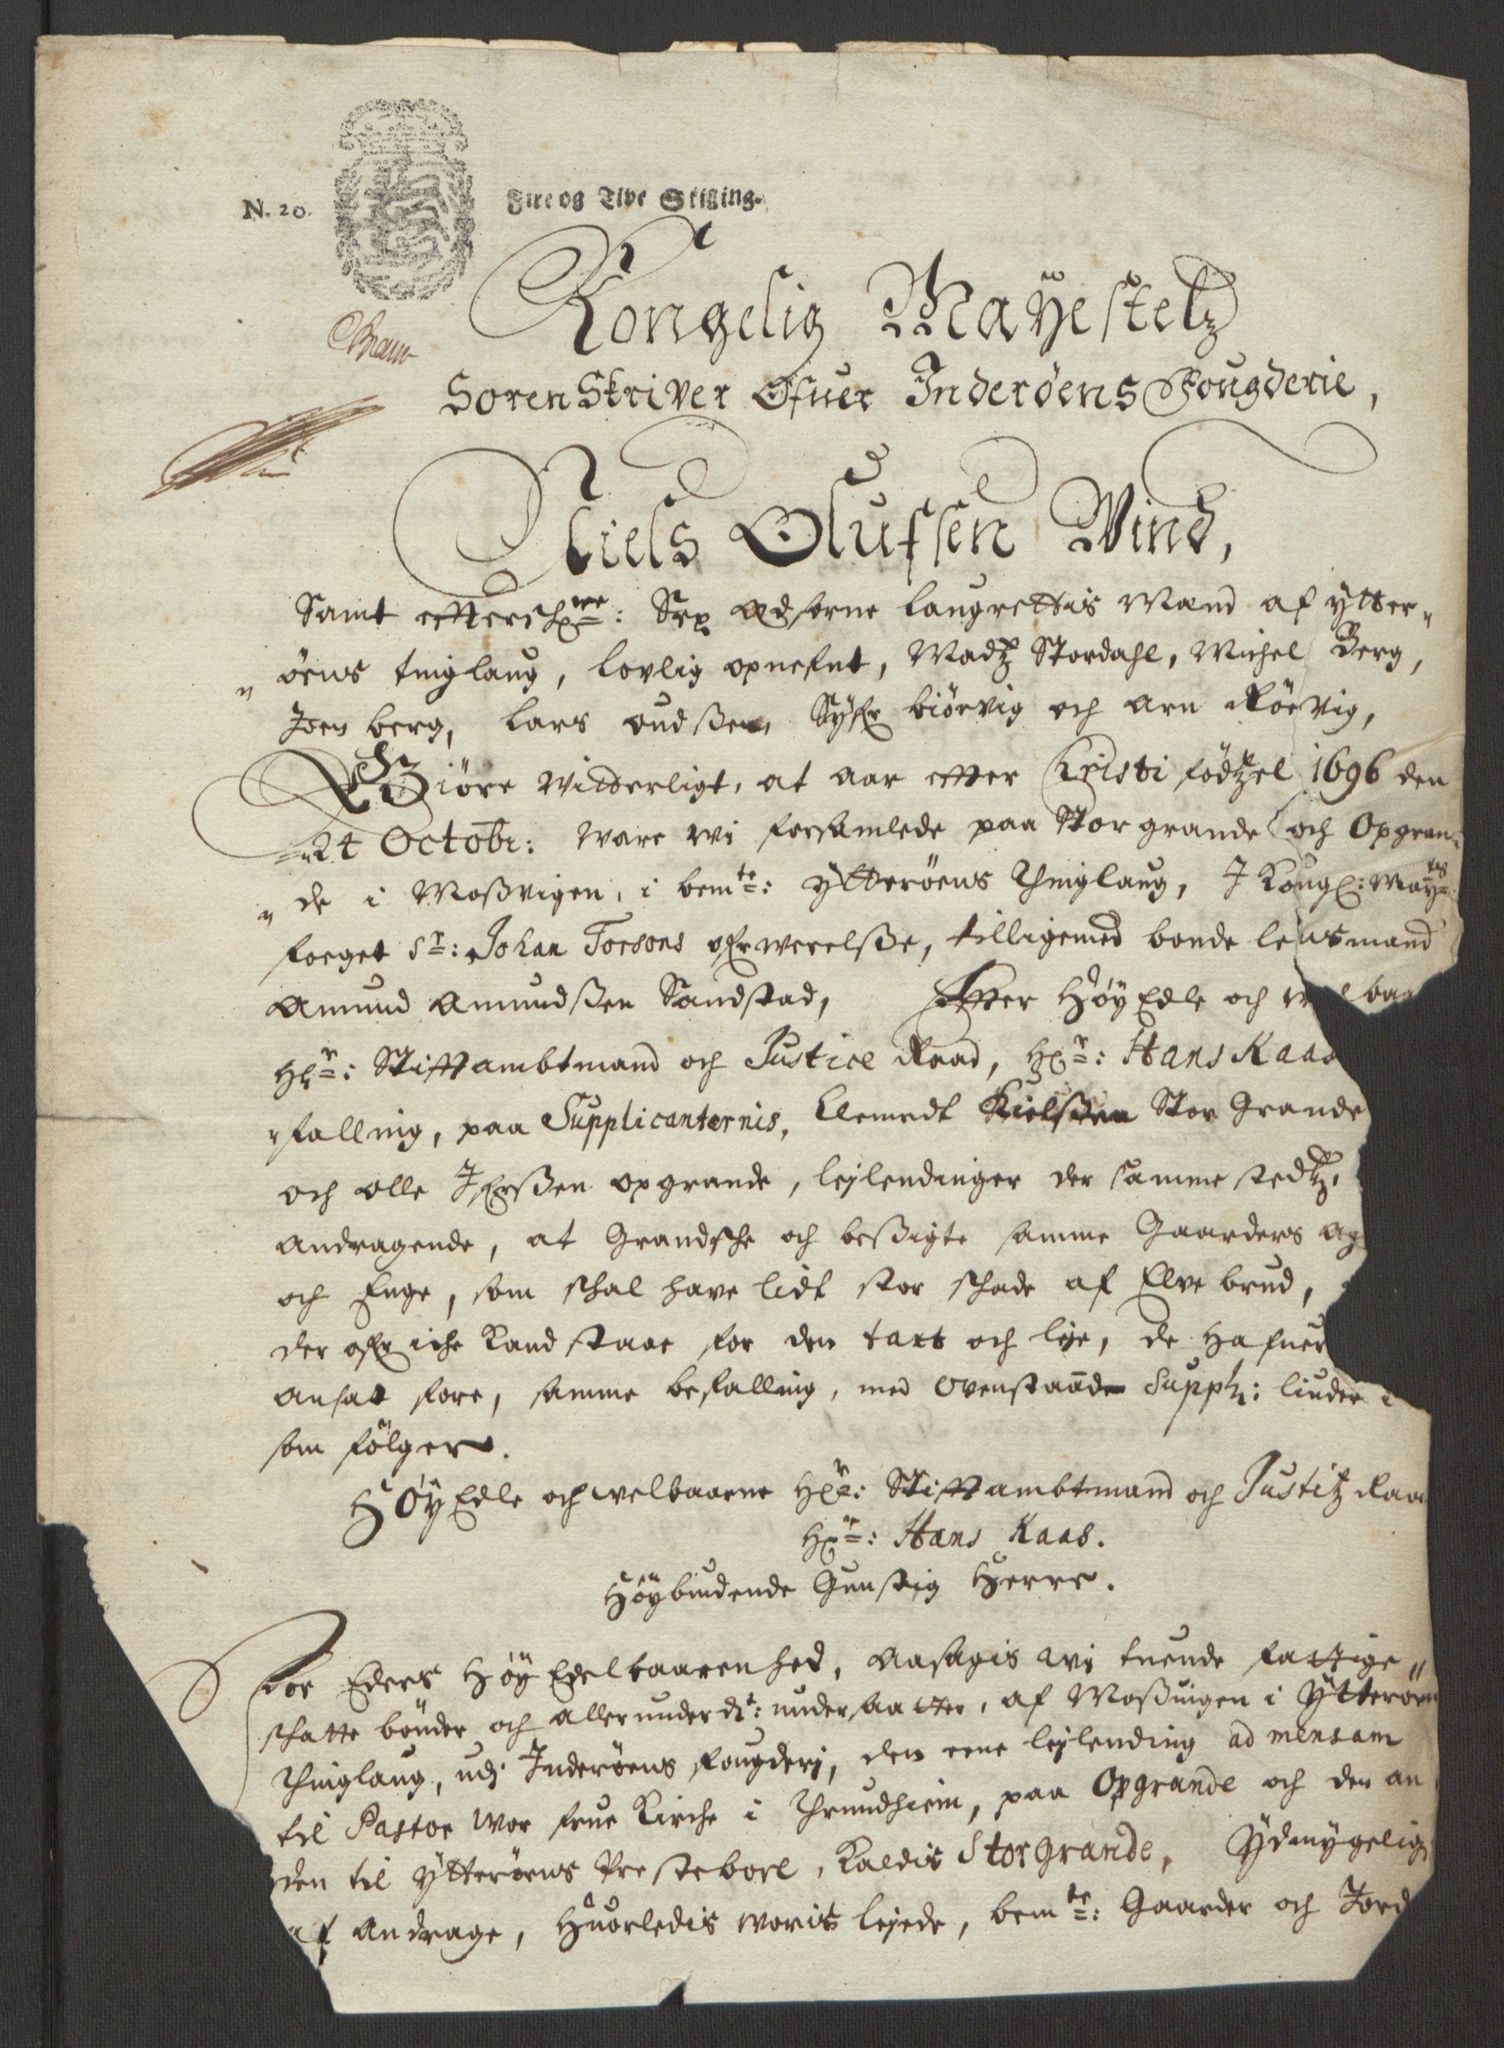 N. 20. Fire og Tive Skilling.
Kongelig Mayestetz
Soren Skriver Ofuer Inderöens Fougderie,
Niels Olufsen Wind,
Samt effterschne: Sex Edsorne laugrettis Mænd af ytter„
„öens tinglaug, lovlig opnefnt, Madtz Stordahl, Michel Berg,
Joen berg, Lars oudßen, Syfr biörvig och arn Rörvig,
Giöre Witterligt, at aar efter Kristi födtzel 1696 den
24 Octobr: Ware wi forsamlede paa Storgrande och Opgran„
„de i Moßvigen, i bemte: ytteröens Thinglaug, I Kongl: Mayts
foeget Sr: Johan Torsons ofrwerelße, tilligemed bonde lensmand
Amund Amundßen Sandstad, Efter Höy Edle och welbaa
Hr: Stiftambtmand och Justice Raad, Hr: Hans Kaas
falling, paa Supplicanternis, Clemedt Kielßen Stor Grande
och olle Ifverßen opgrande, lejlendinger der samme stedtz,
andragende, at Grandsche och beßigte samme Gaarders ag
och Enge, som schal have lidt stor schade af Elve brud,
der ofr iche Kand staae for den taxt och leje, de Hafuer
ansat fore, samme befalling, med ovenstaaende Suppl: liuder
som fölger.
Höy Edle och welbaarne Hr: Stiftambtmand och Justitz Raa
Hr: Hans Kaas.
Höybiudende Gunstig Herre.
For Eders Höy Edelbaarenhed, aarsagis wi tuende fattige„
schatte bönder och allerunderdt: undersaatter, af Moßuigen i Ytteröen
Thinglaug, udj Inderöens fougderj, den eene lejlending ad mensam
til Pastor Wor frue Kirche i Thrundhiem, paa Opgrande och den an
den til ytteröens Prestebord, Kaldis Storgrande, Ydmygelig
at andrage, Huorledis woris lejede, bemte: Gaarder och Jord